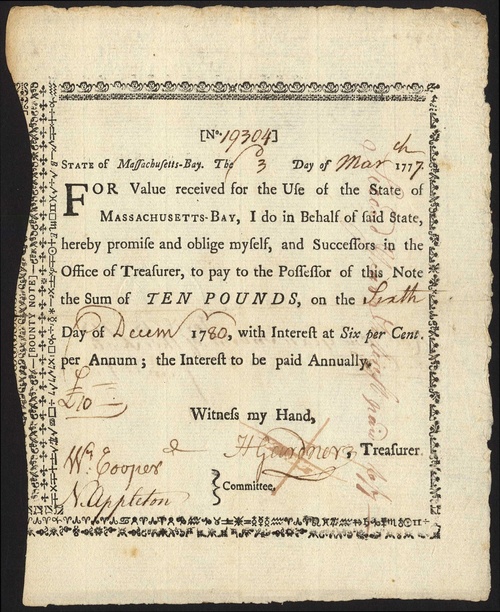 [No. 19304]
STATE of Maſſachuſetts-Bay. The 3 Day of March 1777.
FOR Value received for the Uſe of the State of
MASSACHUSETTS-BAY, I do in Behalf of ſaid State,
hereby promiſe and oblige myſelf, and Succeſſors in the
Office of Treaſurer, to pay to the Poſſeſſor of this Note
the Sum of TEN POUNDS, on the
Day of Decem 1780, with Intereſt at Six per Cent.
per Annum; the Intereſt to be paid Annually.
£10
Witneſs my Hand,
HGardner, Treaſurer.
Wm. Cooper
N. Appleton
} Committee.
[BOUNTY NOTE]